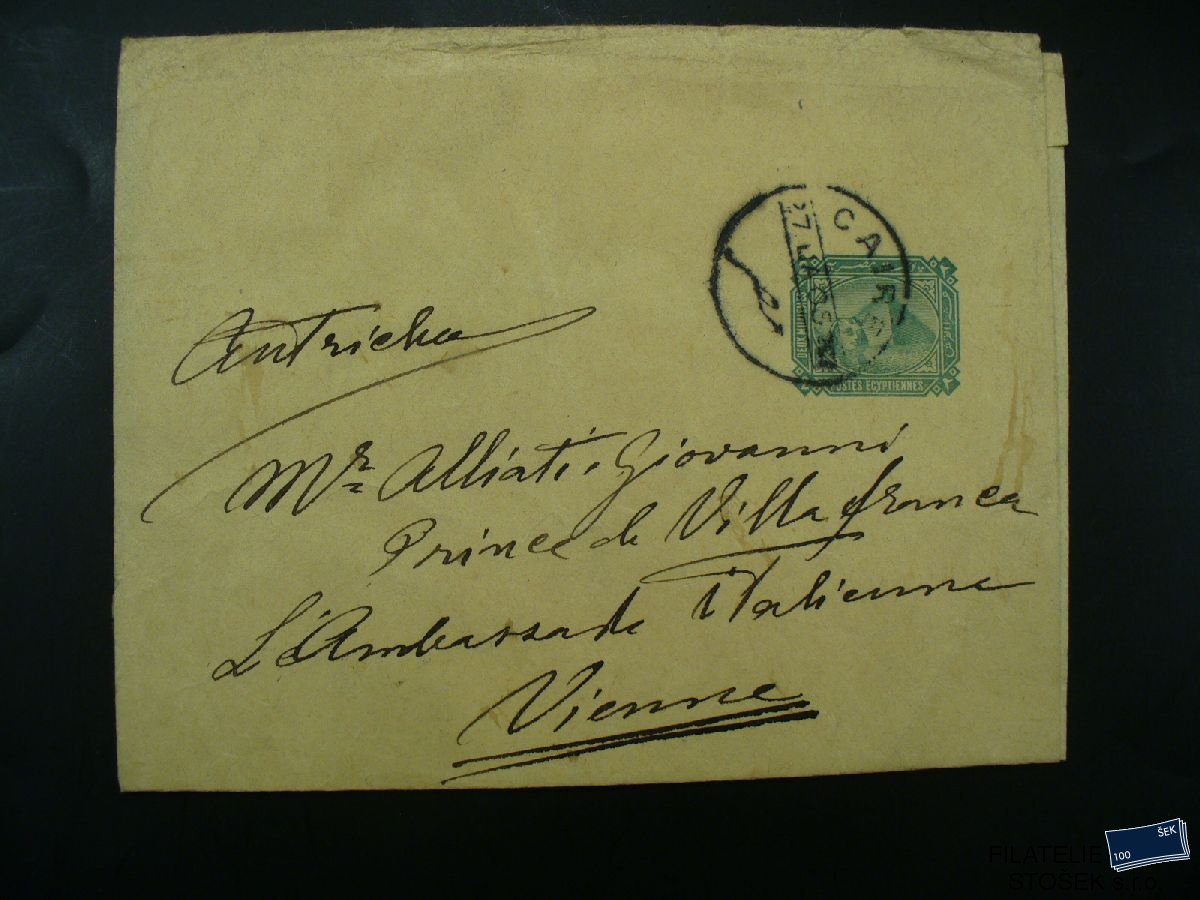 CAIRE
POSTES EGYPTIENNES
Autricha
Mr Alliati Giovanni
Prince de Villafranca
L'Ambassade Italienne
Vienne
ŠEK
100
FILATELIE
STOŠEK s.r.o.